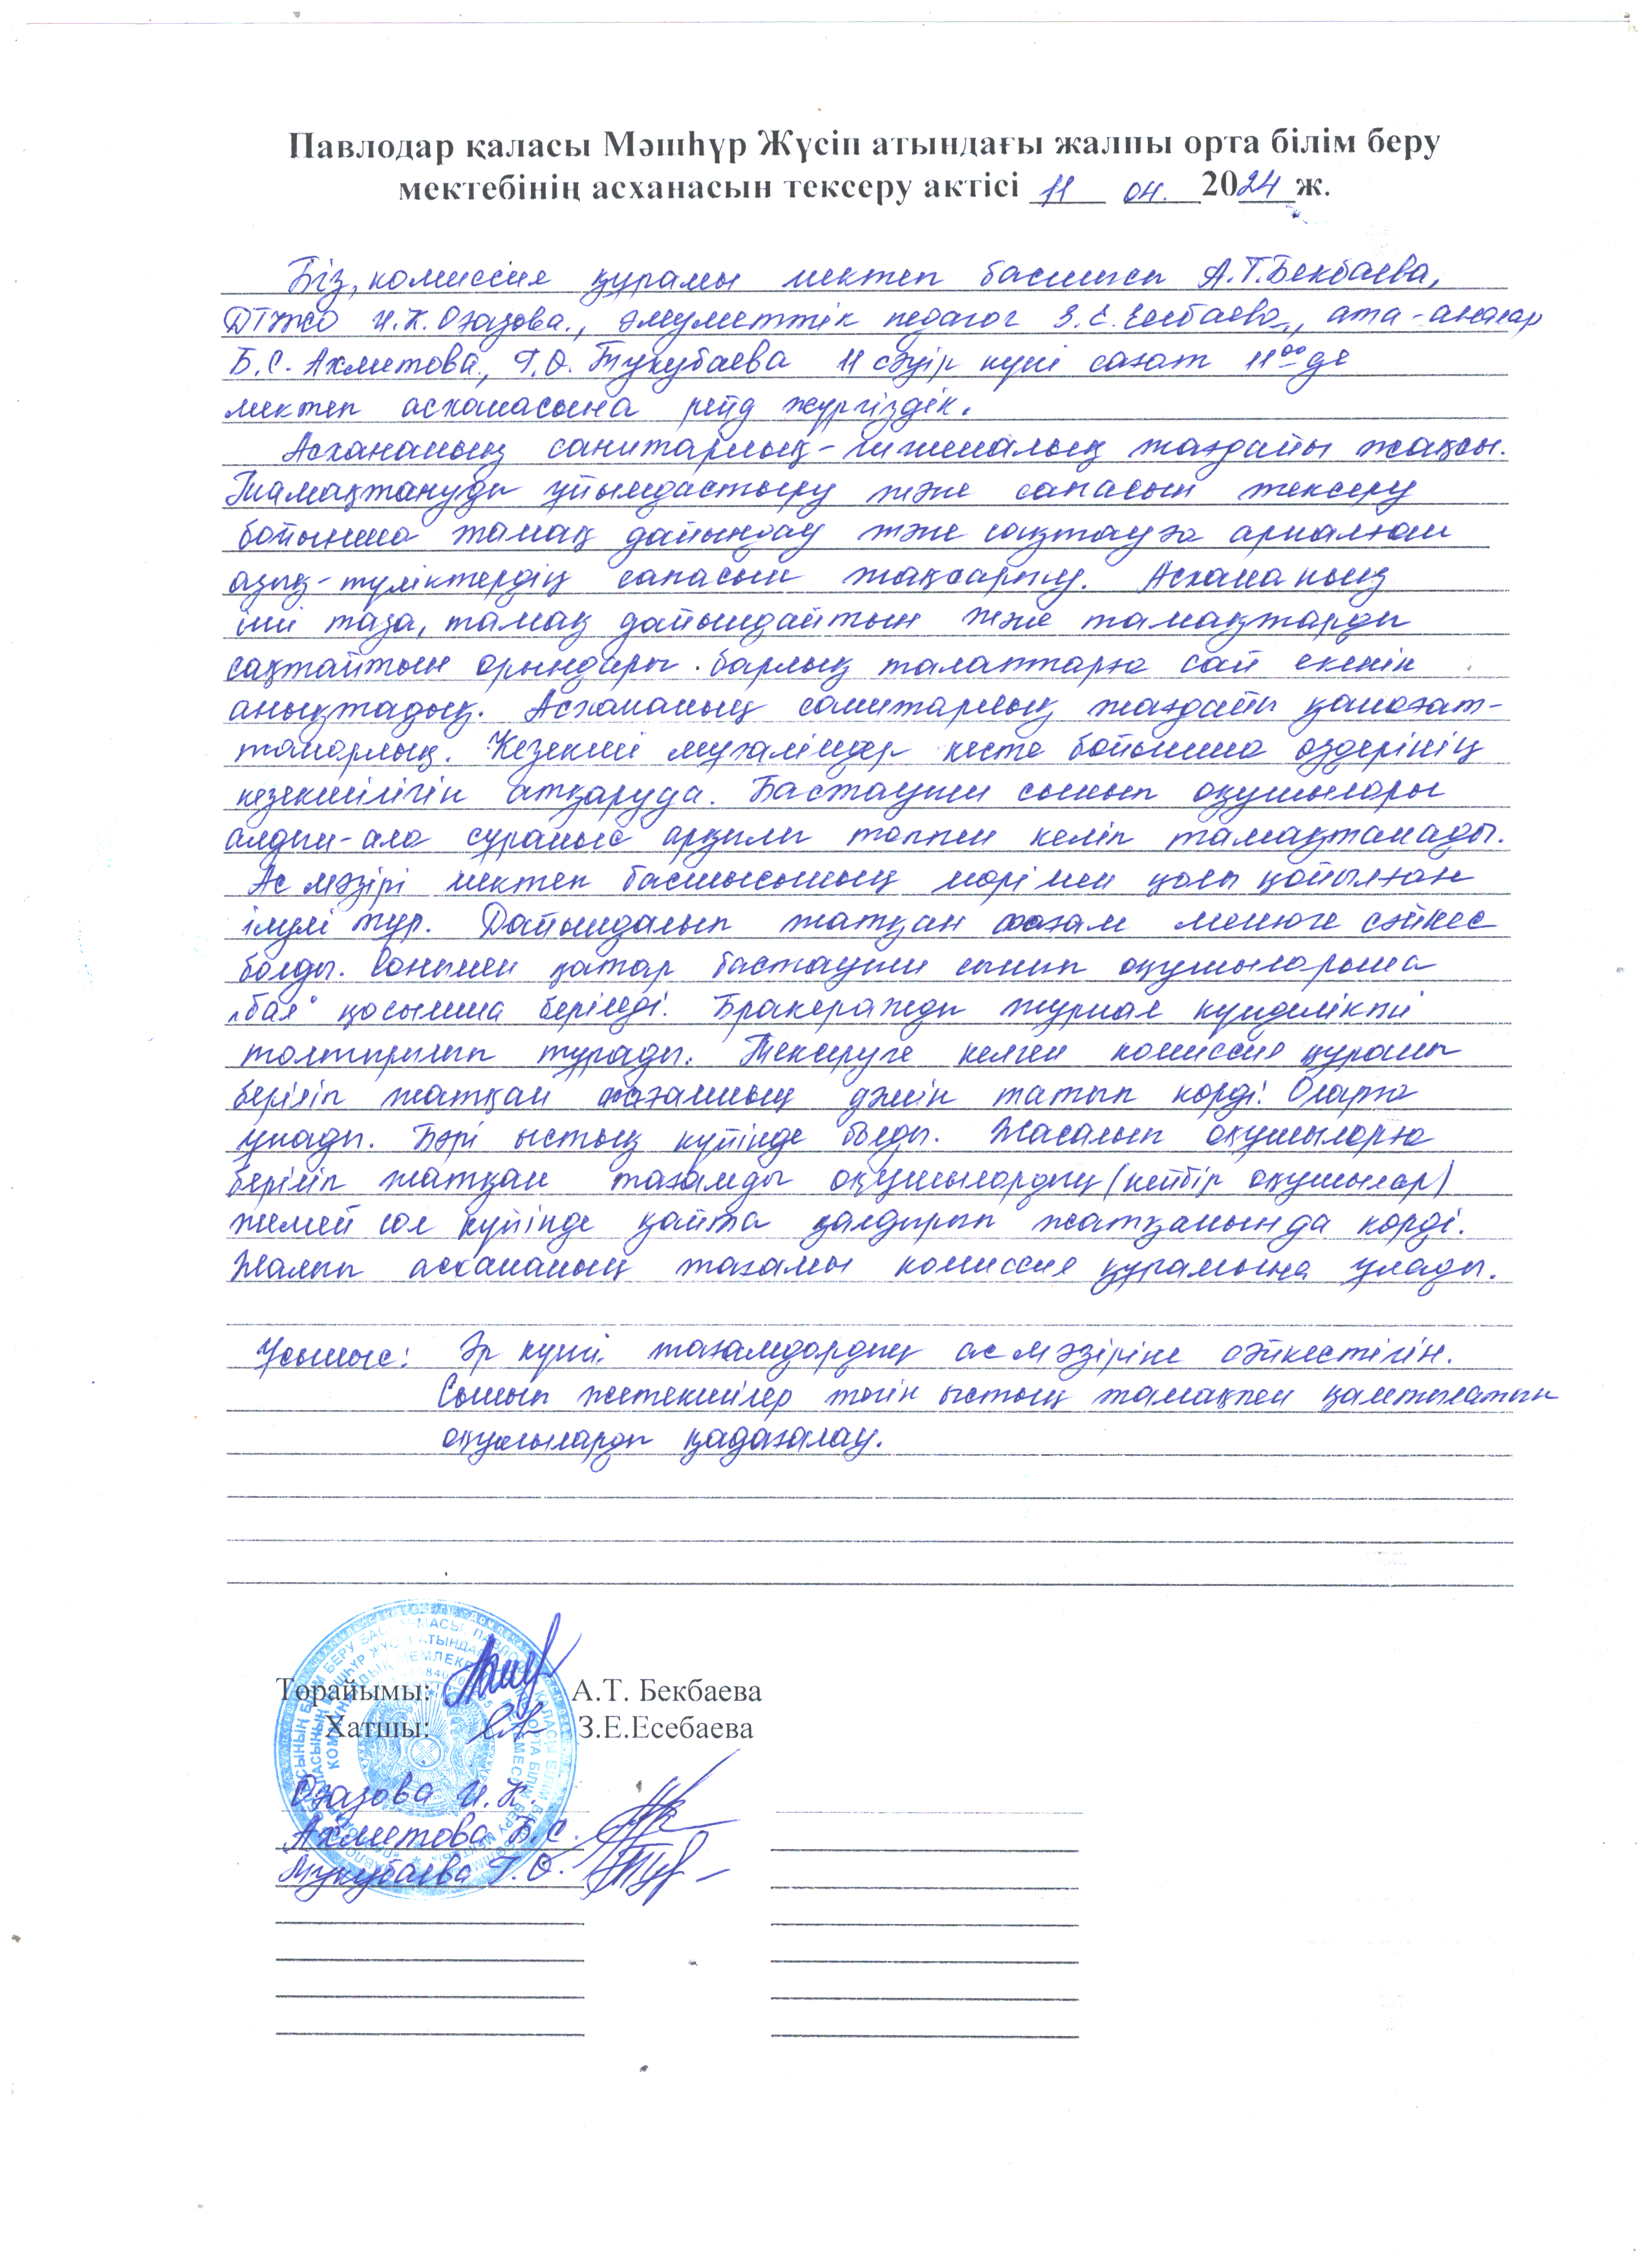 Павлодар қаласы Мәшһүр Жүсіп атындағы жалпы орта білім беру
мектебінің асханасын тексеру актісі 11 04. 2024 ж.
Біз, комиссия құрамы мектеп басшысы А.Т.Бекбаева,
ДТІЖО И.К. Оғазова., әлеуметтік педагог З.Е. Есебаева., ата-аналар
Б.С. Ахметова., Г.О. Тукубаева 11 сәуір күні сағат 11⁰⁰ де
мектеп асханасына рейд жүргіздік.
Асхананың санитарлық-гигиеналық жағдайы жақсы.
Тамақтануды ұйымдастыру және сапасын тексеру
бойынша тамақ дайындау және сақтауға арналған
азық-түліктердің сапасын жақсарту. Асхананың
іші таза, тамақ дайындайтын және тамақтарды
сақтайтын орындары барлық талаптарға сай екенін
анықтадық. Асхананың санитарлық жағдайы қанағат-
танарлық. Кезекші мұғалімдер кесте бойынша өздерінің
кезекшілігін атқаруда. Бастауыш сынып оқушылары
алдын-ала сұраныс арқылы топпен келіп тамақтанады.
Ас мәзірі мектеп басшысының мөрімен қолы қойылған
ілулі тұр. Дайындалып жатқан тағам менюге сәйкес
болды. Сонымен қатар бастауыш сынып оқушыларына
қосымша беріледі. Бракеражды журнал күнделікті
толтырылып тұрады. Тексеруге келген комиссия құрамы
беріліп жатқан тағамның дәмін татып көрді. Оларға
ұнады. Бәрі ыстық күйінде болды. Жасалып оқушыларға
беріліп жатқан тағамды оқушылардың (кейбір оқушылар)
жемей сол күйінде қайта қалдырып жатқанында көрді.
Жалпы асхананың тағамы комиссия құрамына ұнады.
Ұсыныс: Әр күні тағамдардың ас мәзіріне сәйкестігін.
Сынып жетекшілер тегін ыстық тамақпен қамтылатын
оқушыларды қадағалау.
Төрайымы: А.Т. Бекбаева
Хатшы: З.Е.Есебаева
Оғазова И.К.
Ахметова Б.С.
Тукубаева Г.О.